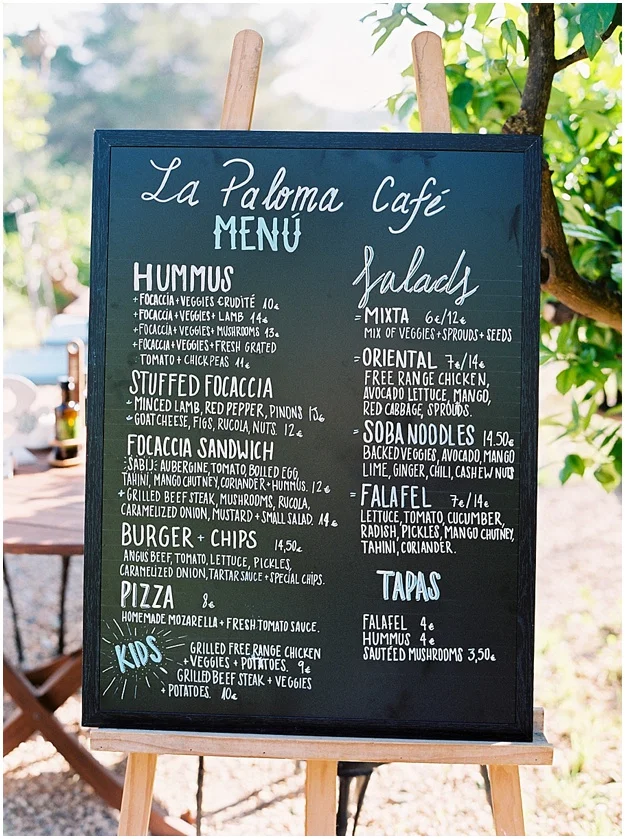 La Paloma Café
MENÚ
HUMMUS
+ FOCACCIA + VEGGIES CRUDITÉ 10€
+ FOCACCIA + VEGGIES + LAMB 14€
+ FOCACCIA + VEGGIES + MUSHROOMS 13€
+ FOCACCIA + VEGGIES + FRESH GRATED
TOMATO + CHICKPEAS 11€
STUFFED FOCACCIA
- MINCED LAMB, RED PEPPER, PINONS
- GOATCHEESE, FIGS, RUCOLA, NUTS. 12€
FOCACCIA SANDWICH
"SABIJ: AUBERGINE, TOMATO BOILED EGG,
TAHINI, MANGO CHUTNEY, CORIANDER + HUMMUS. 12€
+ GRILLED BEEF STEAK, MUSHROOMS, RUCOLA,
CARAMELIZED ONION, MUSTARD + SMALL SALAD. 14€
BURGER + CHIPS 14,50€
ANGUS BEEF, TOMATO, LETTUCE, PICKLES,
CARAMELIZED ONION, TARTAR SAUCE + SPECIAL CHIPS.
PIZZA 8€
HOMEMADE MOZARELLA + FRESH TOMATO SAUCE.
KIDS
GRILLED FREE RANGE CHICKEN
+ VEGGIES + POTATOES. 9€
GRILLED BEEF STEAK + VEGGIES
+ POTATOES. 10€
Salads
= MIXTA 6€/12€
MIX OF VEGGIES + SPROUDS + SEEDS
= ORIENTAL 7€/14€
FREE RANGE CHICKEN,
AVOCADO LETTUCE, MANGO,
RED CABBAGE, SPROUDS.
= SOBA NOODLES 14.50€
BACKED VEGGIES, AVOCADO, MANGO
LIME, GINGER, CHILI, CASHEW NUTS
= FALAFEL 7€/14€
LETTUCE, TOMATO, CUCUMBER,
RADISH, PICKLES, MANGO CHUTNEY,
TAHINI, CORIANDER.
TAPAS
FALAFEL 4€
HUMMUS 4€
SAUTÉED MUSHROOMS 3,50€